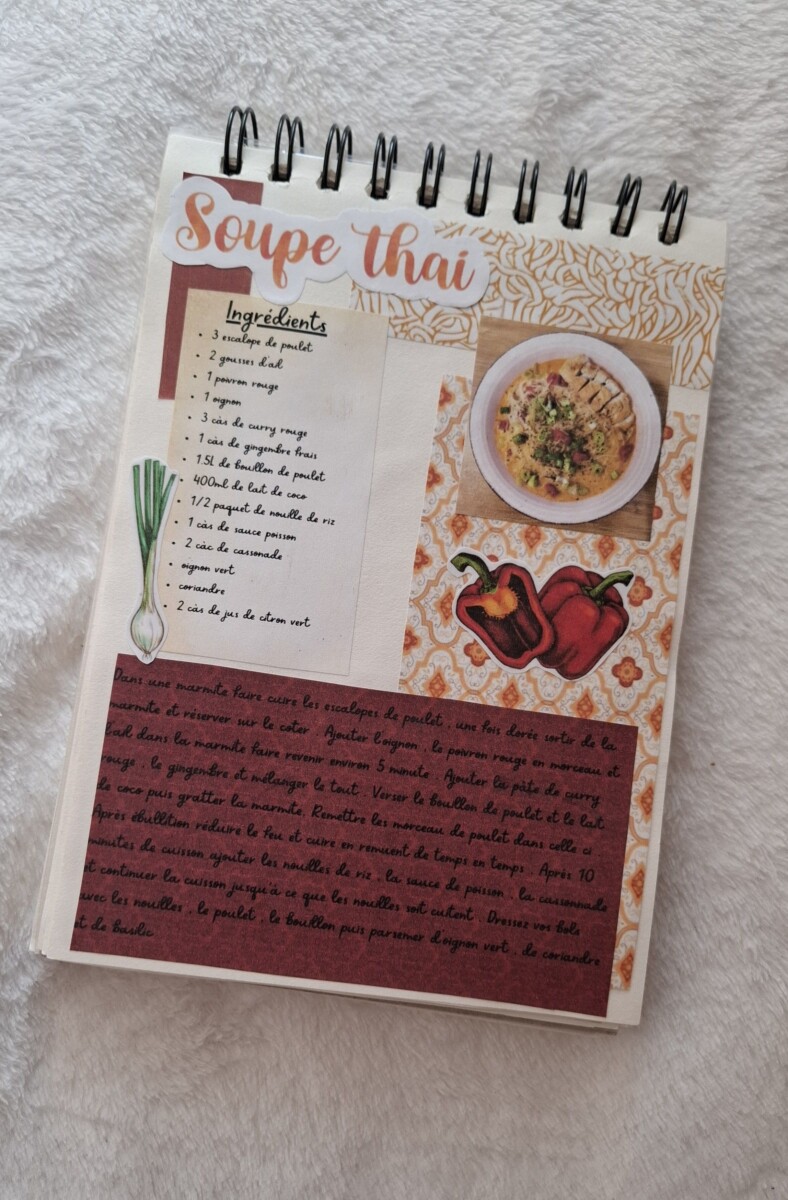 Soupe thai
Ingrédients
• 3 escalope de poulet
• 2 gousses d'ail
• 1 poivron rouge
• 1 oignon
• 3 càs de curry rouge
• 1 càs de gingembre frais
• 1.5l de bouillon de poulet
• 400ml de lait de coco
• 1/2 paquet de nouille de riz
• 1 càs de sauce poisson
• 2 càc de cassonade
• oignon vert
• coriandre
• 2 càs de jus de citron vert
Dans une marmite faire cuire les escalopes de poulet , une fois dorée sortir de la
marmite et réserver sur le coter . Ajouter l'oignon , le poivron rouge en morceau et
l'ail dans la marmite faire revenir environ 5 minute . Ajouter la pâte de curry
rouge , le gingembre et mélanger le tout . Verser le bouillon de poulet et le lait
de coco puis gratter la marmite. Remettre les morceau de poulet dans celle ci .
Après ébullition réduire le feu et cuire en remuent de temps en temps . Après 10
minutes de cuisson ajouter les nouilles de riz , la sauce de poisson , la cassonnade
et continuer la cuisson jusqu'à ce que les nouilles soit cuitent . Dressez vos bols
avec les nouilles , le poulet , le bouillon puis parsemer d'oignon vert , de coriandre
et de basilic